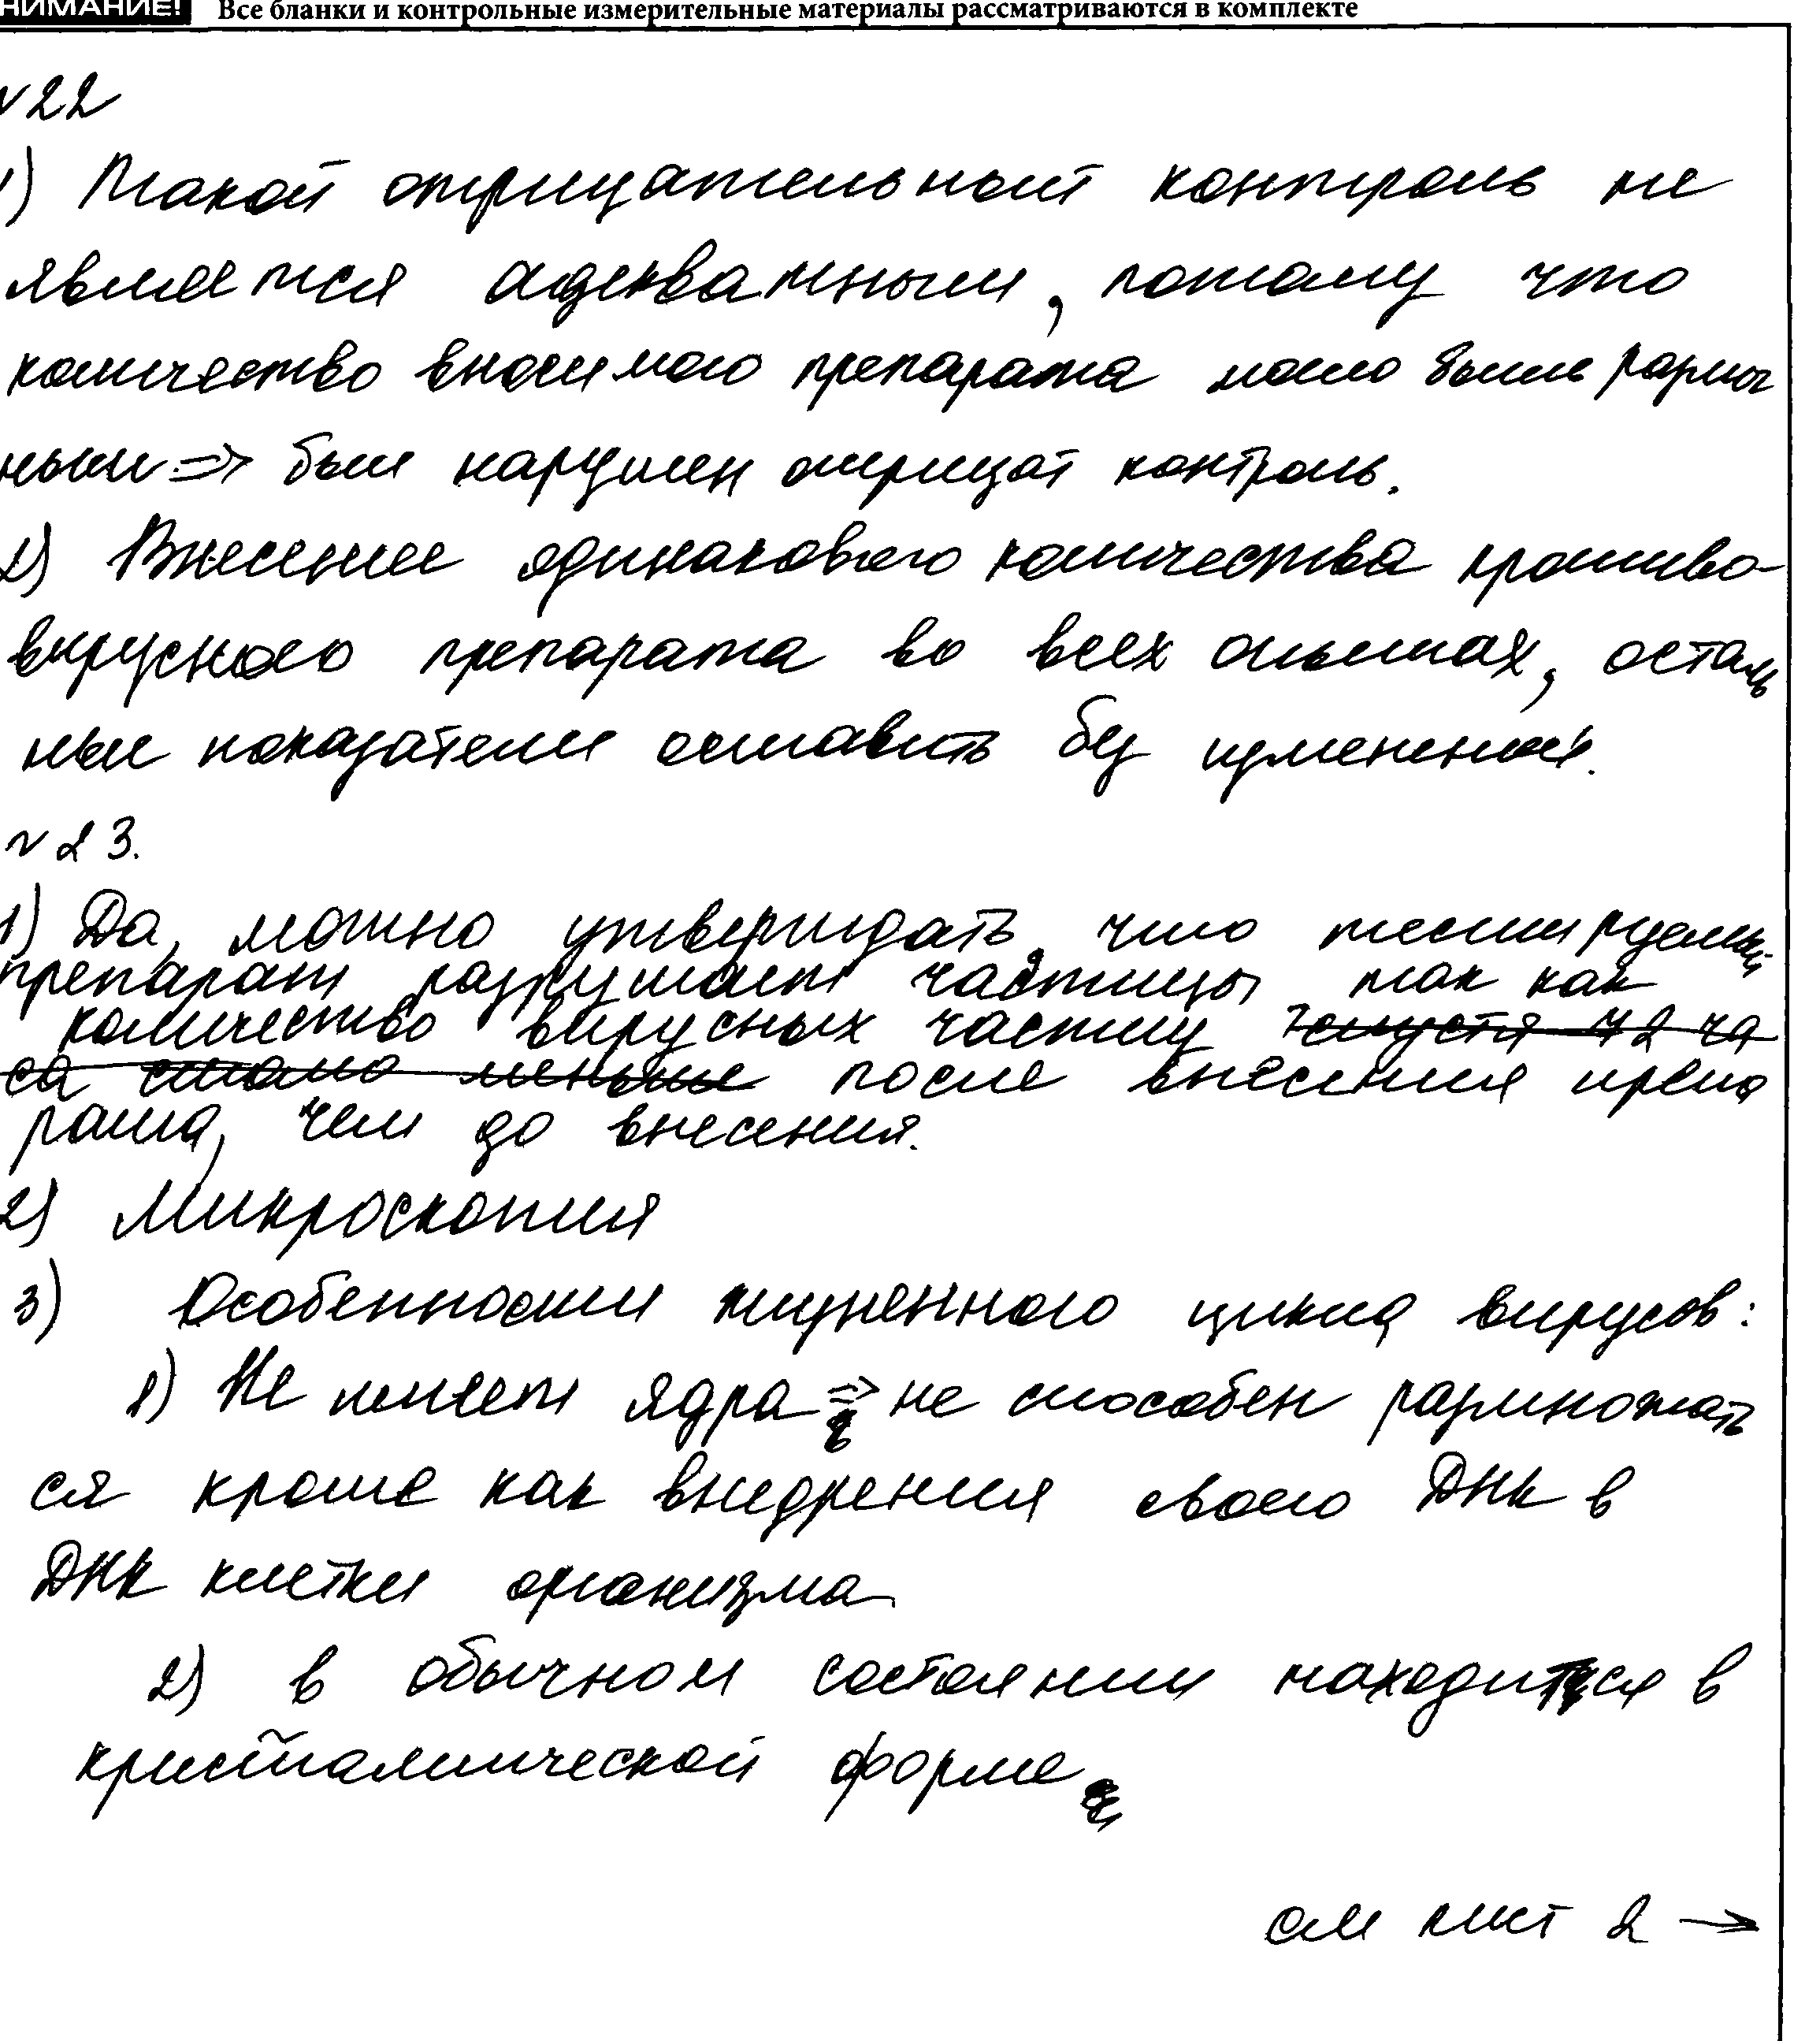 НИМАНИЕ! Все бланки и контрольные измерительные материалы рассматриваются в комплекте
№22
1) Такой отрицательный контроль не
является адекватным, потому что
количество вносимого препарата могло быть различ
ным => был нарушен отрицат контроль.
2) Внесение одинакового количества противо-
вирусного препарата во всех опытах, осталь
ные показатели оставить без изменений.
№23.
1) Да, можно утверждать, что тестируемый
препарат разрушает частицы так как
количество вирусных частиц спустя 72 ча
са стало меньше после внесения препа
рата, чем до внесения.
2) Микроскопия
3) Особенности жизненного цикла вирусов:
1) Не имеет ядра => не способен размножать
ся кроме как внедрения своего ДНК в
ДНК клетки организма
2) в обычном состоянии находится в
кристаллической форме
см лист 2 →